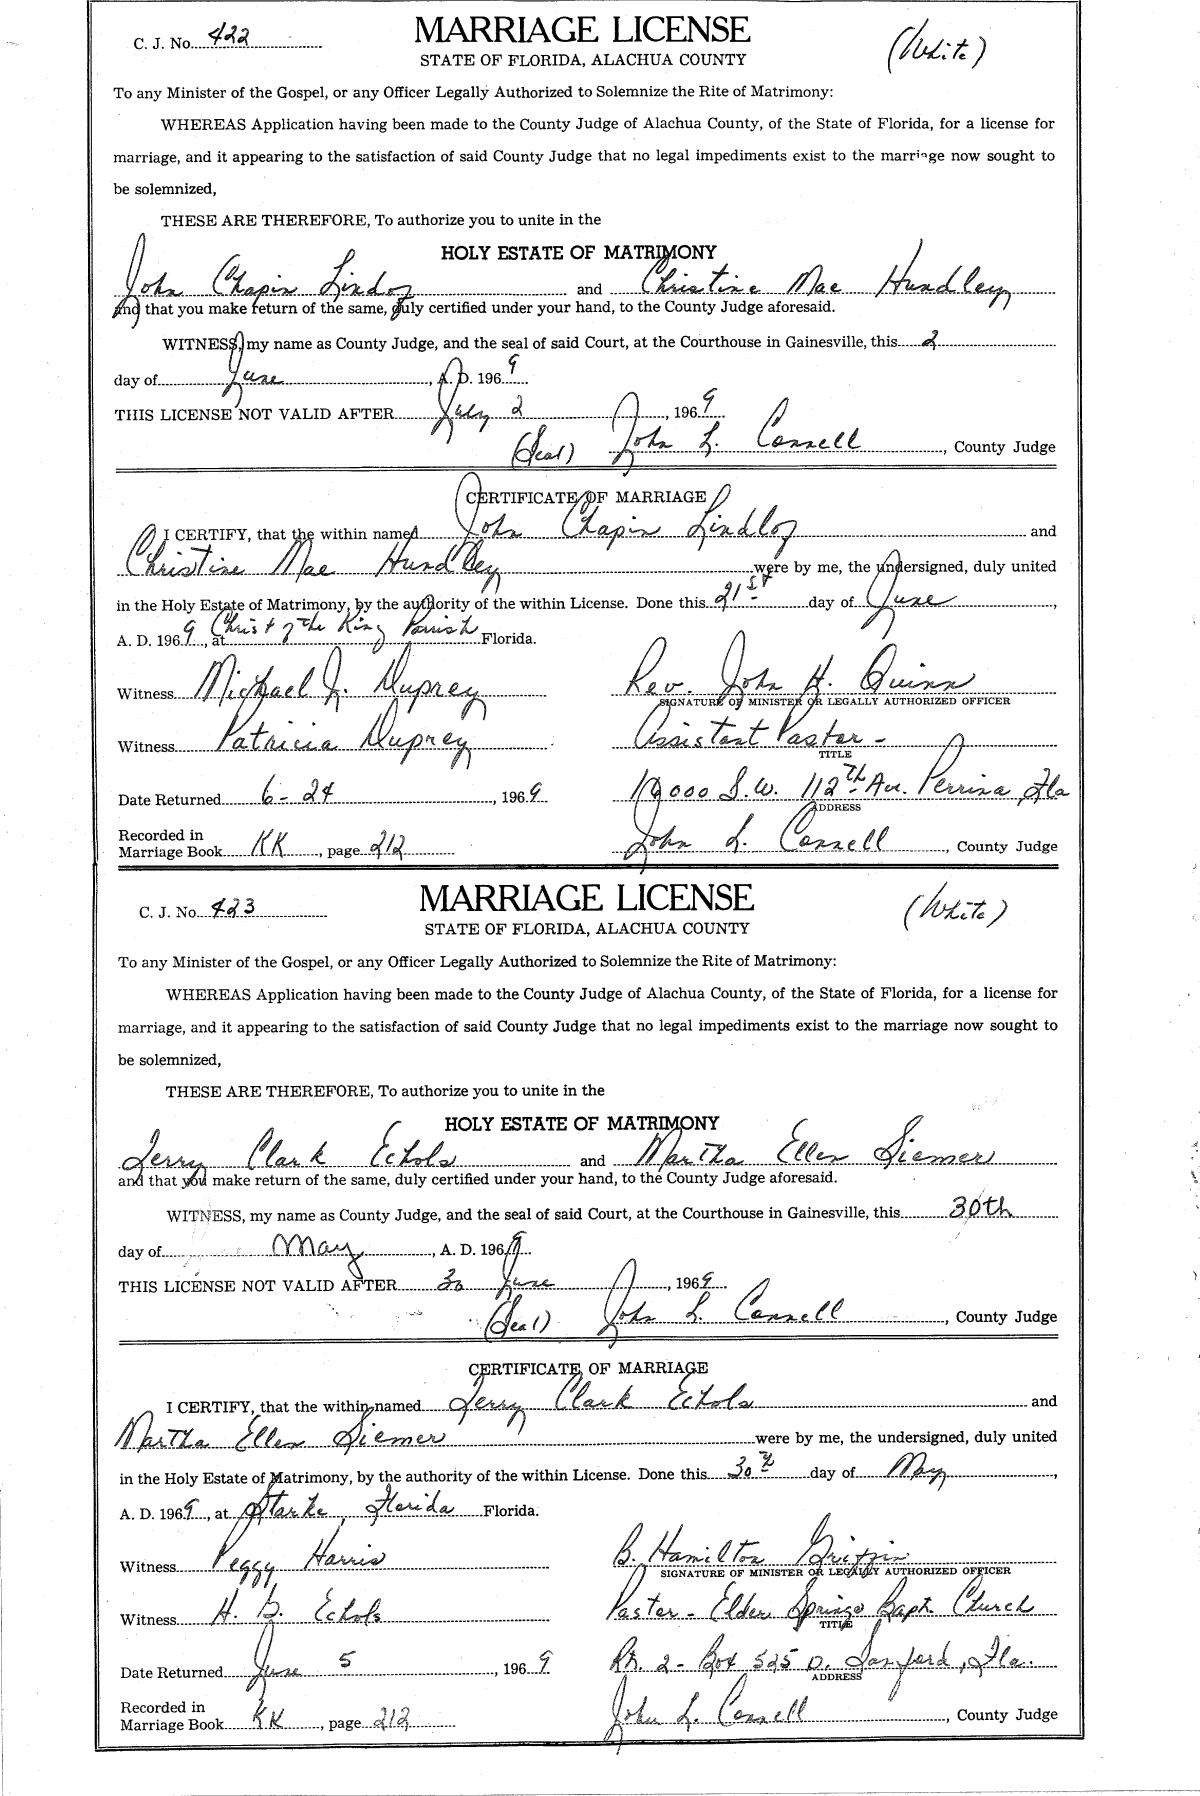 C. J. No. 422
MARRIAGE LICENSE
(White)
STATE OF FLORIDA, ALACHUA COUNTY
To any Minister of the Gospel, or any Officer Legally Authorized to Solemnize the Rite of Matrimony:
WHEREAS Application having been made to the County Judge of Alachua County, of the State of Florida, for a license for
marriage, and it appearing to the satisfaction of said County Judge that no legal impediments exist to the marriage now sought to
be solemnized,
THESE ARE THEREFORE, To authorize you to unite in the
HOLY ESTATE OF MATRIMONY
John Chapin and Christine Mae Hundley
and that you make return of the same, duly certified under your hand, to the County Judge aforesaid.
WITNESS, my name as County Judge, and the seal of said Court, at the Courthouse in Gainesville, this 2
day of June, A. D. 1969
THIS LICENSE NOT VALID AFTER July 2, 1969
(Seal) John L. Connell, County Judge
CERTIFICATE OF MARRIAGE
I CERTIFY, that the within named John Chapin and
Christine Mae Hundley were by me, the undersigned, duly united
in the Holy Estate of Matrimony, by the authority of the within License. Done this 21st day of June,
A. D. 1969, at Christ of the King Parrish Florida.
Witness Michael J. Duprey Rev. John H. Quinn
SIGNATURE OF MINISTER OR LEGALLY AUTHORIZED OFFICER
Witness Patricia Duprey Assistant Pastor -
TITLE
Date Returned 6-24, 1969 S.W. 112th Ave. Perrine, Fla
ADDRESS
Recorded in
Marriage Book KK, page 212 John L. Connell, County Judge
C. J. No. 423
MARRIAGE LICENSE
(White)
STATE OF FLORIDA, ALACHUA COUNTY
To any Minister of the Gospel, or any Officer Legally Authorized to Solemnize the Rite of Matrimony:
WHEREAS Application having been made to the County Judge of Alachua County, of the State of Florida, for a license for
marriage, and it appearing to the satisfaction of said County Judge that no legal impediments exist to the marriage now sought to
be solemnized,
THESE ARE THEREFORE, To authorize you to unite in the
HOLY ESTATE OF MATRIMONY
Jerry Clark Echols and Martha Ellen Siemer
and that you make return of the same, duly certified under your hand, to the County Judge aforesaid.
WITNESS, my name as County Judge, and the seal of said Court, at the Courthouse in Gainesville, this 30th
day of May, A. D. 1969
THIS LICENSE NOT VALID AFTER 30 June, 1969
(Seal) John L. Connell, County Judge
CERTIFICATE OF MARRIAGE
I CERTIFY, that the within named Jerry Clark Echols and
Martha Ellen Siemer were by me, the undersigned, duly united
in the Holy Estate of Matrimony, by the authority of the within License. Done this 30th day of May,
A. D. 1969, at Starke, Florida Florida.
Witness Peggy Harris B. Hamilton Griffin
SIGNATURE OF MINISTER OR LEGALLY AUTHORIZED OFFICER
Witness H. B. Echols Pastor - Elder Springs Bapt. Church
TITLE
Date Returned June 5, 1969 Rt. 2 - Box 525 D. Sanford, Fla.
ADDRESS
Recorded in
Marriage Book KK, page 212 John L. Connell, County Judge